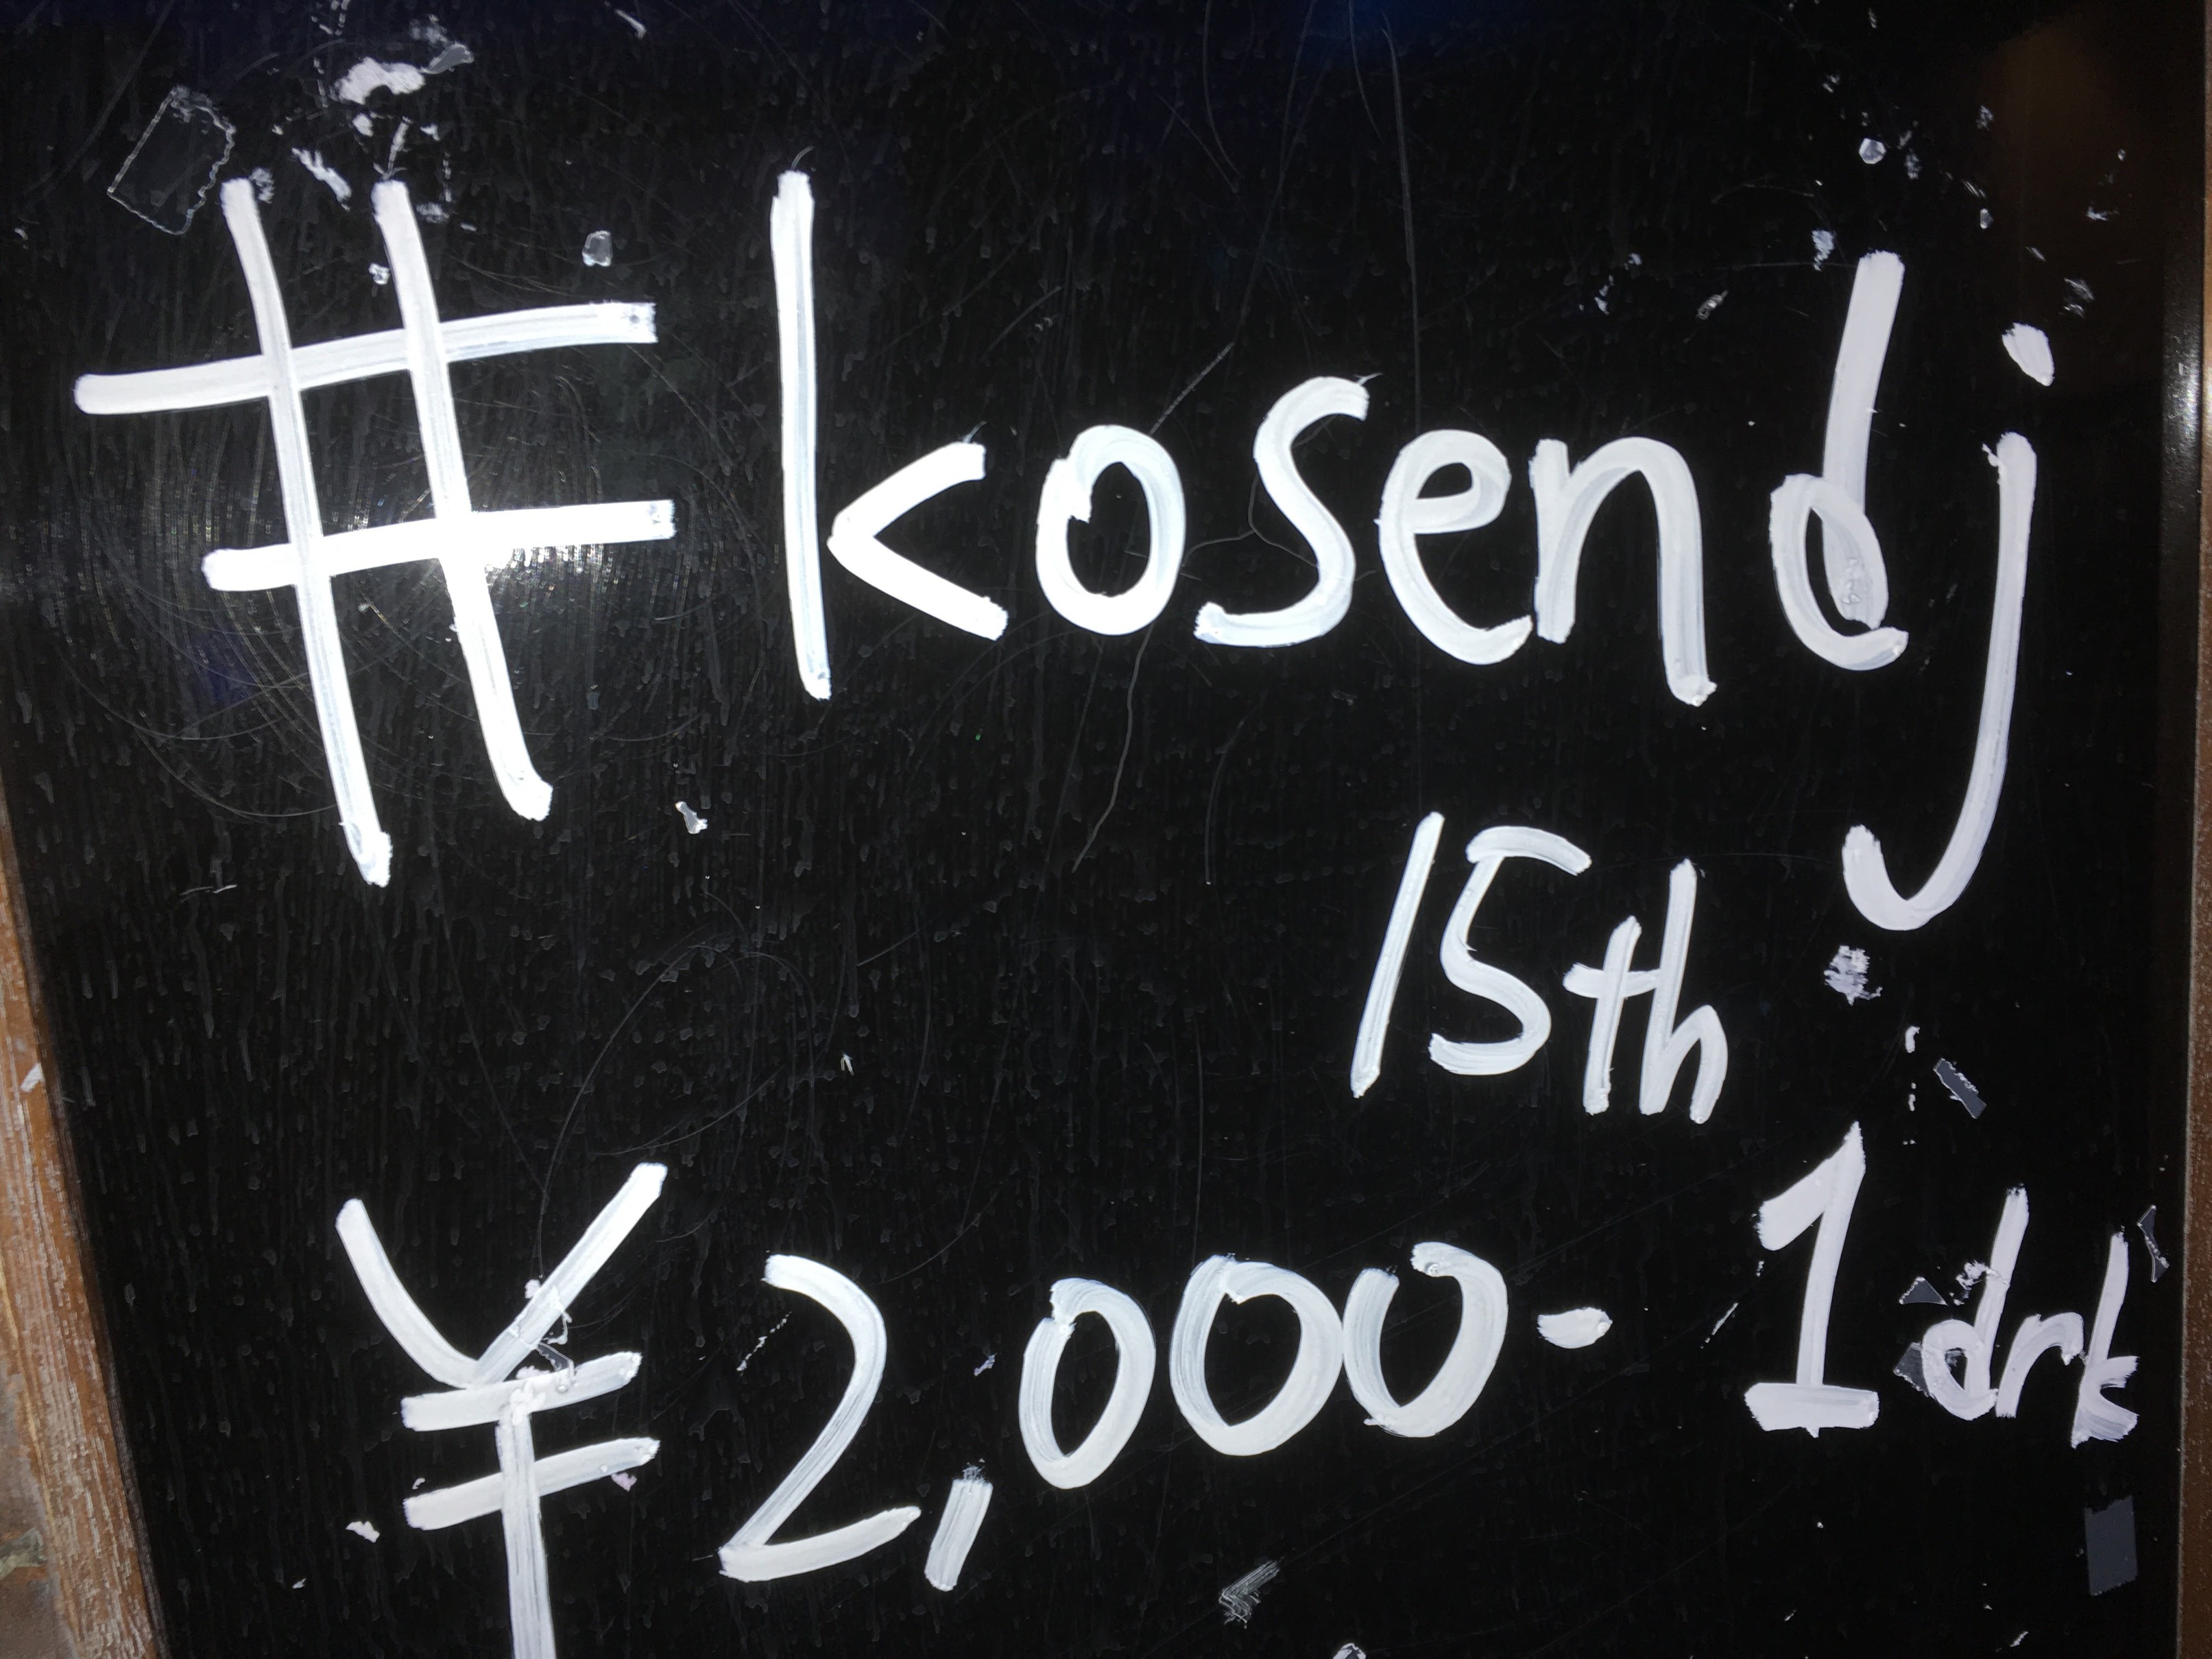 #kosendj
15th
¥2,000- 1drk